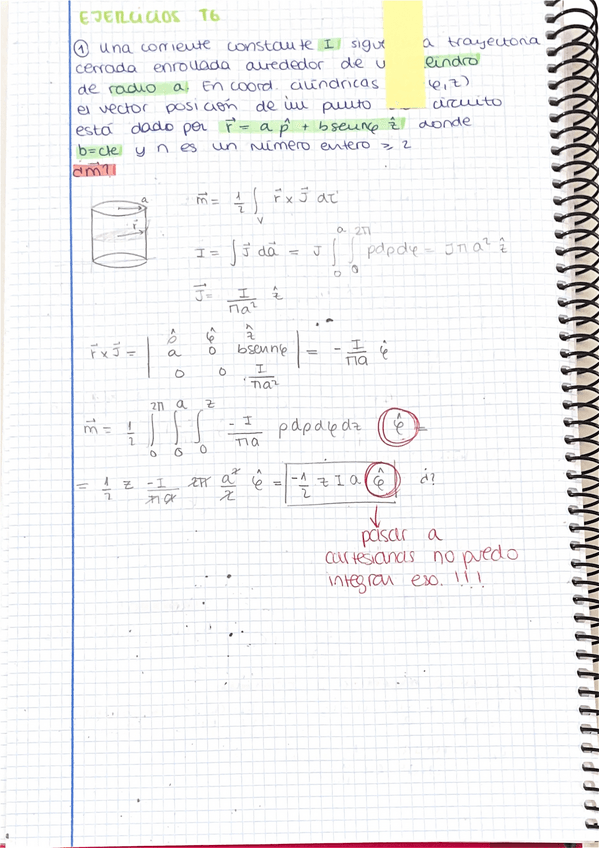 EJERCICIOS T6
① Una corriente constante I sigue a trayectoria
cerrada enrollada alrededor de u lindro
de radio a. En coord. cilíndricas φ, z)
el vector posición de un punto circuito
está dado por r⃗ = a ρ̂ + b sen nφ ẑ donde
b=cte y n es un número entero ≥ 2
dm⃗?
a
r⃗
m⃗ = 1/2 ∫_V r⃗ x J⃗ dτ
I = ∫ J⃗ da⃗ = J ∫_0^a ∫_0^2π ρdρdφ = Jπa² ẑ
J⃗ = I/πa² ẑ
r⃗ x J⃗ = | ρ̂ φ̂ ẑ
a 0 b sen nφ
0 0 I/πa² | = - I/πa φ̂
m⃗ = 1/2 ∫_0^2π ∫_0^a ∫_0^z -I/πa ρdρdφdz φ̂ =
= 1/2 z -I/πa 2π a²/2 φ̂ = -1/2 z I a φ̂ ¿?
pasar a
cartesianas no puedo
integrar eso. !!!